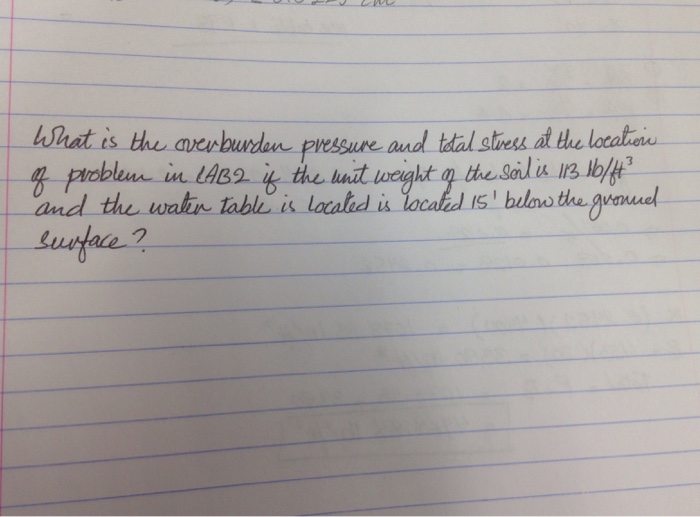 What is the overburden pressure and total stress at the location
of problem in LAB2 if the unit weight of the soil is 113 lb/ft³
and the water table is located is located 15' below the ground
surface?